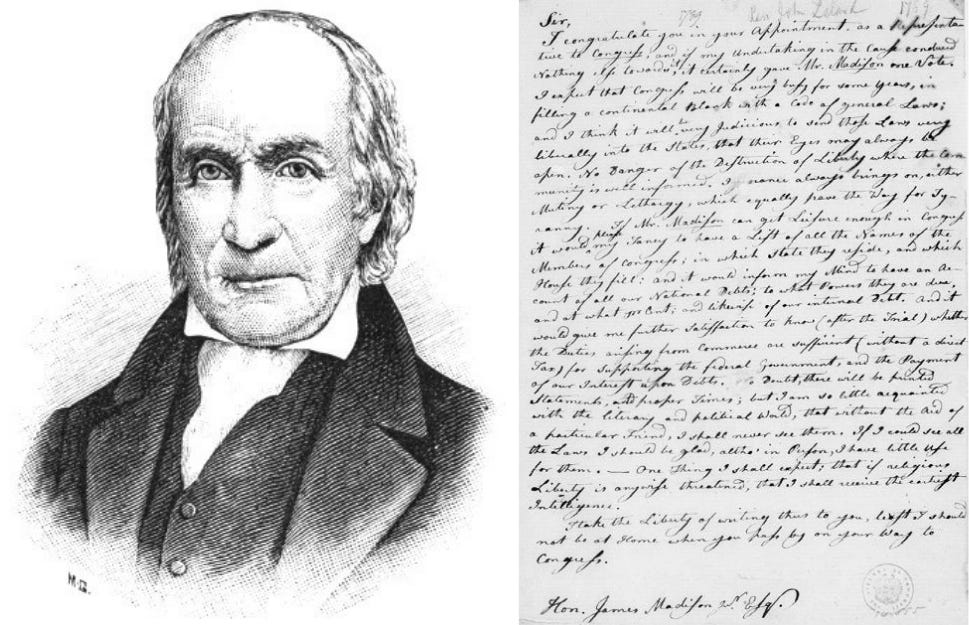 739.
Rev. John Leland 1789
Sir,
I congratulate you in your Appointment, as a Representa-
tive to Congress; and if my Undertaking in the Cause conduced
Nothing else towards it, it certainly gave Mr. Madison one Vote.
I expect that Congress will be very busy for some years, in
filling a continental Blank with a Code of general Laws;
and I think it will be very Judicious to send those Laws very
liberally into the States, that their Eyes may always be
open. No Danger of the Destruction of Liberty where the Com
munity is well informed. Ignorance always brings on, either
Mutiny or Lethargy, which equally pave the Way for Ty-
ranny. If Mr. Madison can get Leisure enough in Congress
it would please my Fancy to have a List of all the Names of the
Members of Congress; in which State they reside, and which
House they fill: and it would inform my Mind to have an Ac-
count of all our National Debts; to what Powers they are due,
and at what pr Cent; and likewise of our internal Debt. And it
would give me further Satisfaction to know (after the Trial) whether
the Duties arising from Commerce are sufficient (without a direct
Tax) for supporting the federal Government, and the Payment
of our Interest upon Debts. No Doubt, there will be printed
Statements, at proper Times; but I am so little acquainted
with the literary and political World, that without the Aid of
a particular Friend, I shall never see them. If I could see all
the Laws I should be glad, altho' in Person, I have little Use
for them. — One Thing I shall expect; that if religious
Liberty is anywise threatened, that I shall receive the earliest
Intelligence.
I take the Liberty of writing thus to you, lest I should
not be at Home when you pass by on your Way to
Congress.
Hon. James Madison Jr. Esqr.
M.B.